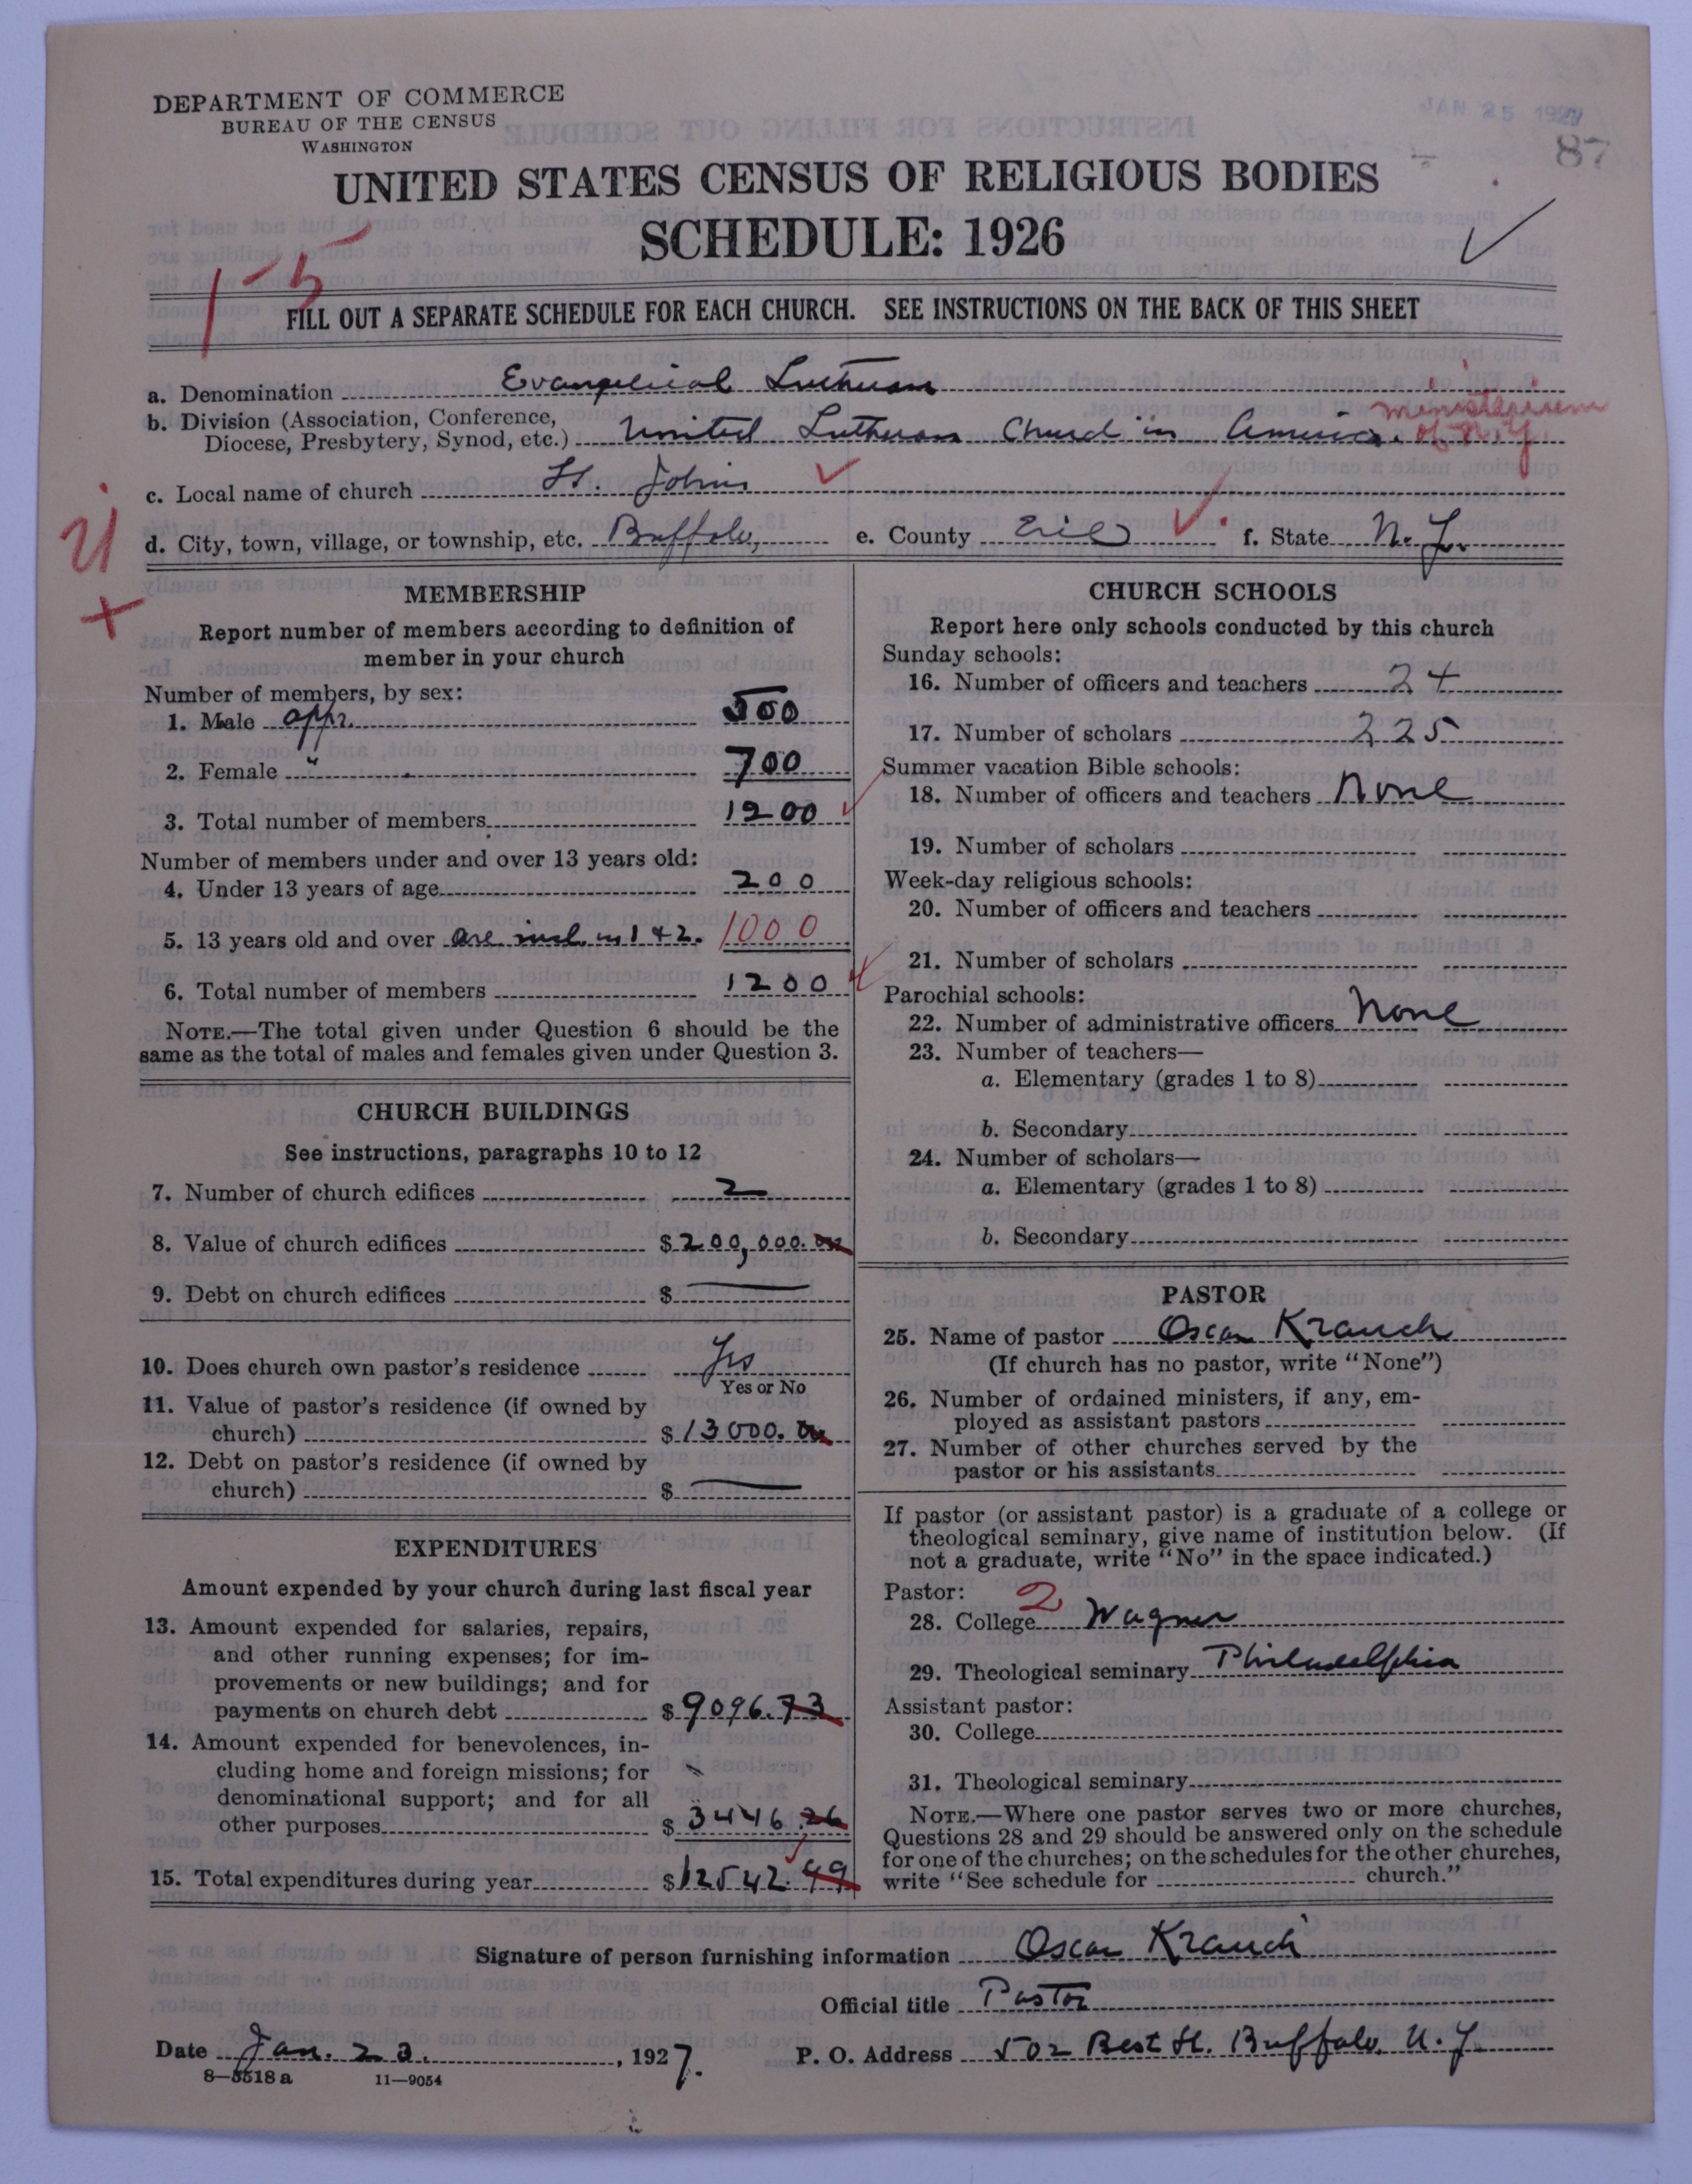 JAN 25 1927
87
DEPARTMENT OF COMMERCE
BUREAU OF THE CENSUS
WASHINGTON
UNITED STATES CENSUS OF RELIGIOUS BODIES
SCHEDULE: 1926
1-5
FILL OUT A SEPARATE SCHEDULE FOR EACH CHURCH. SEE INSTRUCTIONS ON THE BACK OF THIS SHEET
a. Denomination Evangelical Lutheran
b. Division (Association, Conference,
Diocese, Presbytery, Synod, etc.) United Lutheran Church in America. Ministerium
of N.Y.
c. Local name of church St. Johns
d. City, town, village, or township, etc. Buffalo, e. County Erie f. State N.Y.
MEMBERSHIP
Report number of members according to definition of
member in your church
Number of members, by sex:
1. Male appr. 500
2. Female " 700
3. Total number of members 1200
Number of members under and over 13 years old:
4. Under 13 years of age 200
5. 13 years old and over are incl. in 1 & 2. 1000
6. Total number of members 1200
NOTE.—The total given under Question 6 should be the
same as the total of males and females given under Question 3.
CHURCH BUILDINGS
See instructions, paragraphs 10 to 12
7. Number of church edifices 2
8. Value of church edifices $200,000.00
9. Debt on church edifices $ —
10. Does church own pastor's residence Yes
Yes or No
11. Value of pastor's residence (if owned by
church) $13000.00
12. Debt on pastor's residence (if owned by
church) $ —
EXPENDITURES
Amount expended by your church during last fiscal year
13. Amount expended for salaries, repairs,
and other running expenses; for im-
provements or new buildings; and for
payments on church debt $9096.73
14. Amount expended for benevolences, in-
cluding home and foreign missions; for
denominational support; and for all
other purposes $3446.26
15. Total expenditures during year $12542.99
CHURCH SCHOOLS
Report here only schools conducted by this church
Sunday schools:
16. Number of officers and teachers 24
17. Number of scholars 225
Summer vacation Bible schools:
18. Number of officers and teachers None
19. Number of scholars
Week-day religious schools:
20. Number of officers and teachers
21. Number of scholars
Parochial schools:
22. Number of administrative officers None
23. Number of teachers—
a. Elementary (grades 1 to 8)
b. Secondary
24. Number of scholars—
a. Elementary (grades 1 to 8)
b. Secondary
PASTOR
25. Name of pastor Oscar Krauch
(If church has no pastor, write "None")
26. Number of ordained ministers, if any, em-
ployed as assistant pastors
27. Number of other churches served by the
pastor or his assistants
If pastor (or assistant pastor) is a graduate of a college or
theological seminary, give name of institution below. (If
not a graduate, write "No" in the space indicated.)
Pastor: 2
28. College Wagner
29. Theological seminary Philadelphia
Assistant pastor:
30. College
31. Theological seminary
NOTE.—Where one pastor serves two or more churches,
Questions 28 and 29 should be answered only on the schedule
for one of the churches; on the schedules for the other churches,
write "See schedule for church."
Signature of person furnishing information Oscar Krauch
Official title Pastor
Date Jan. 23. , 1927. P. O. Address 502 Best St. Buffalo, N.Y.
8—5518 a 11—9054